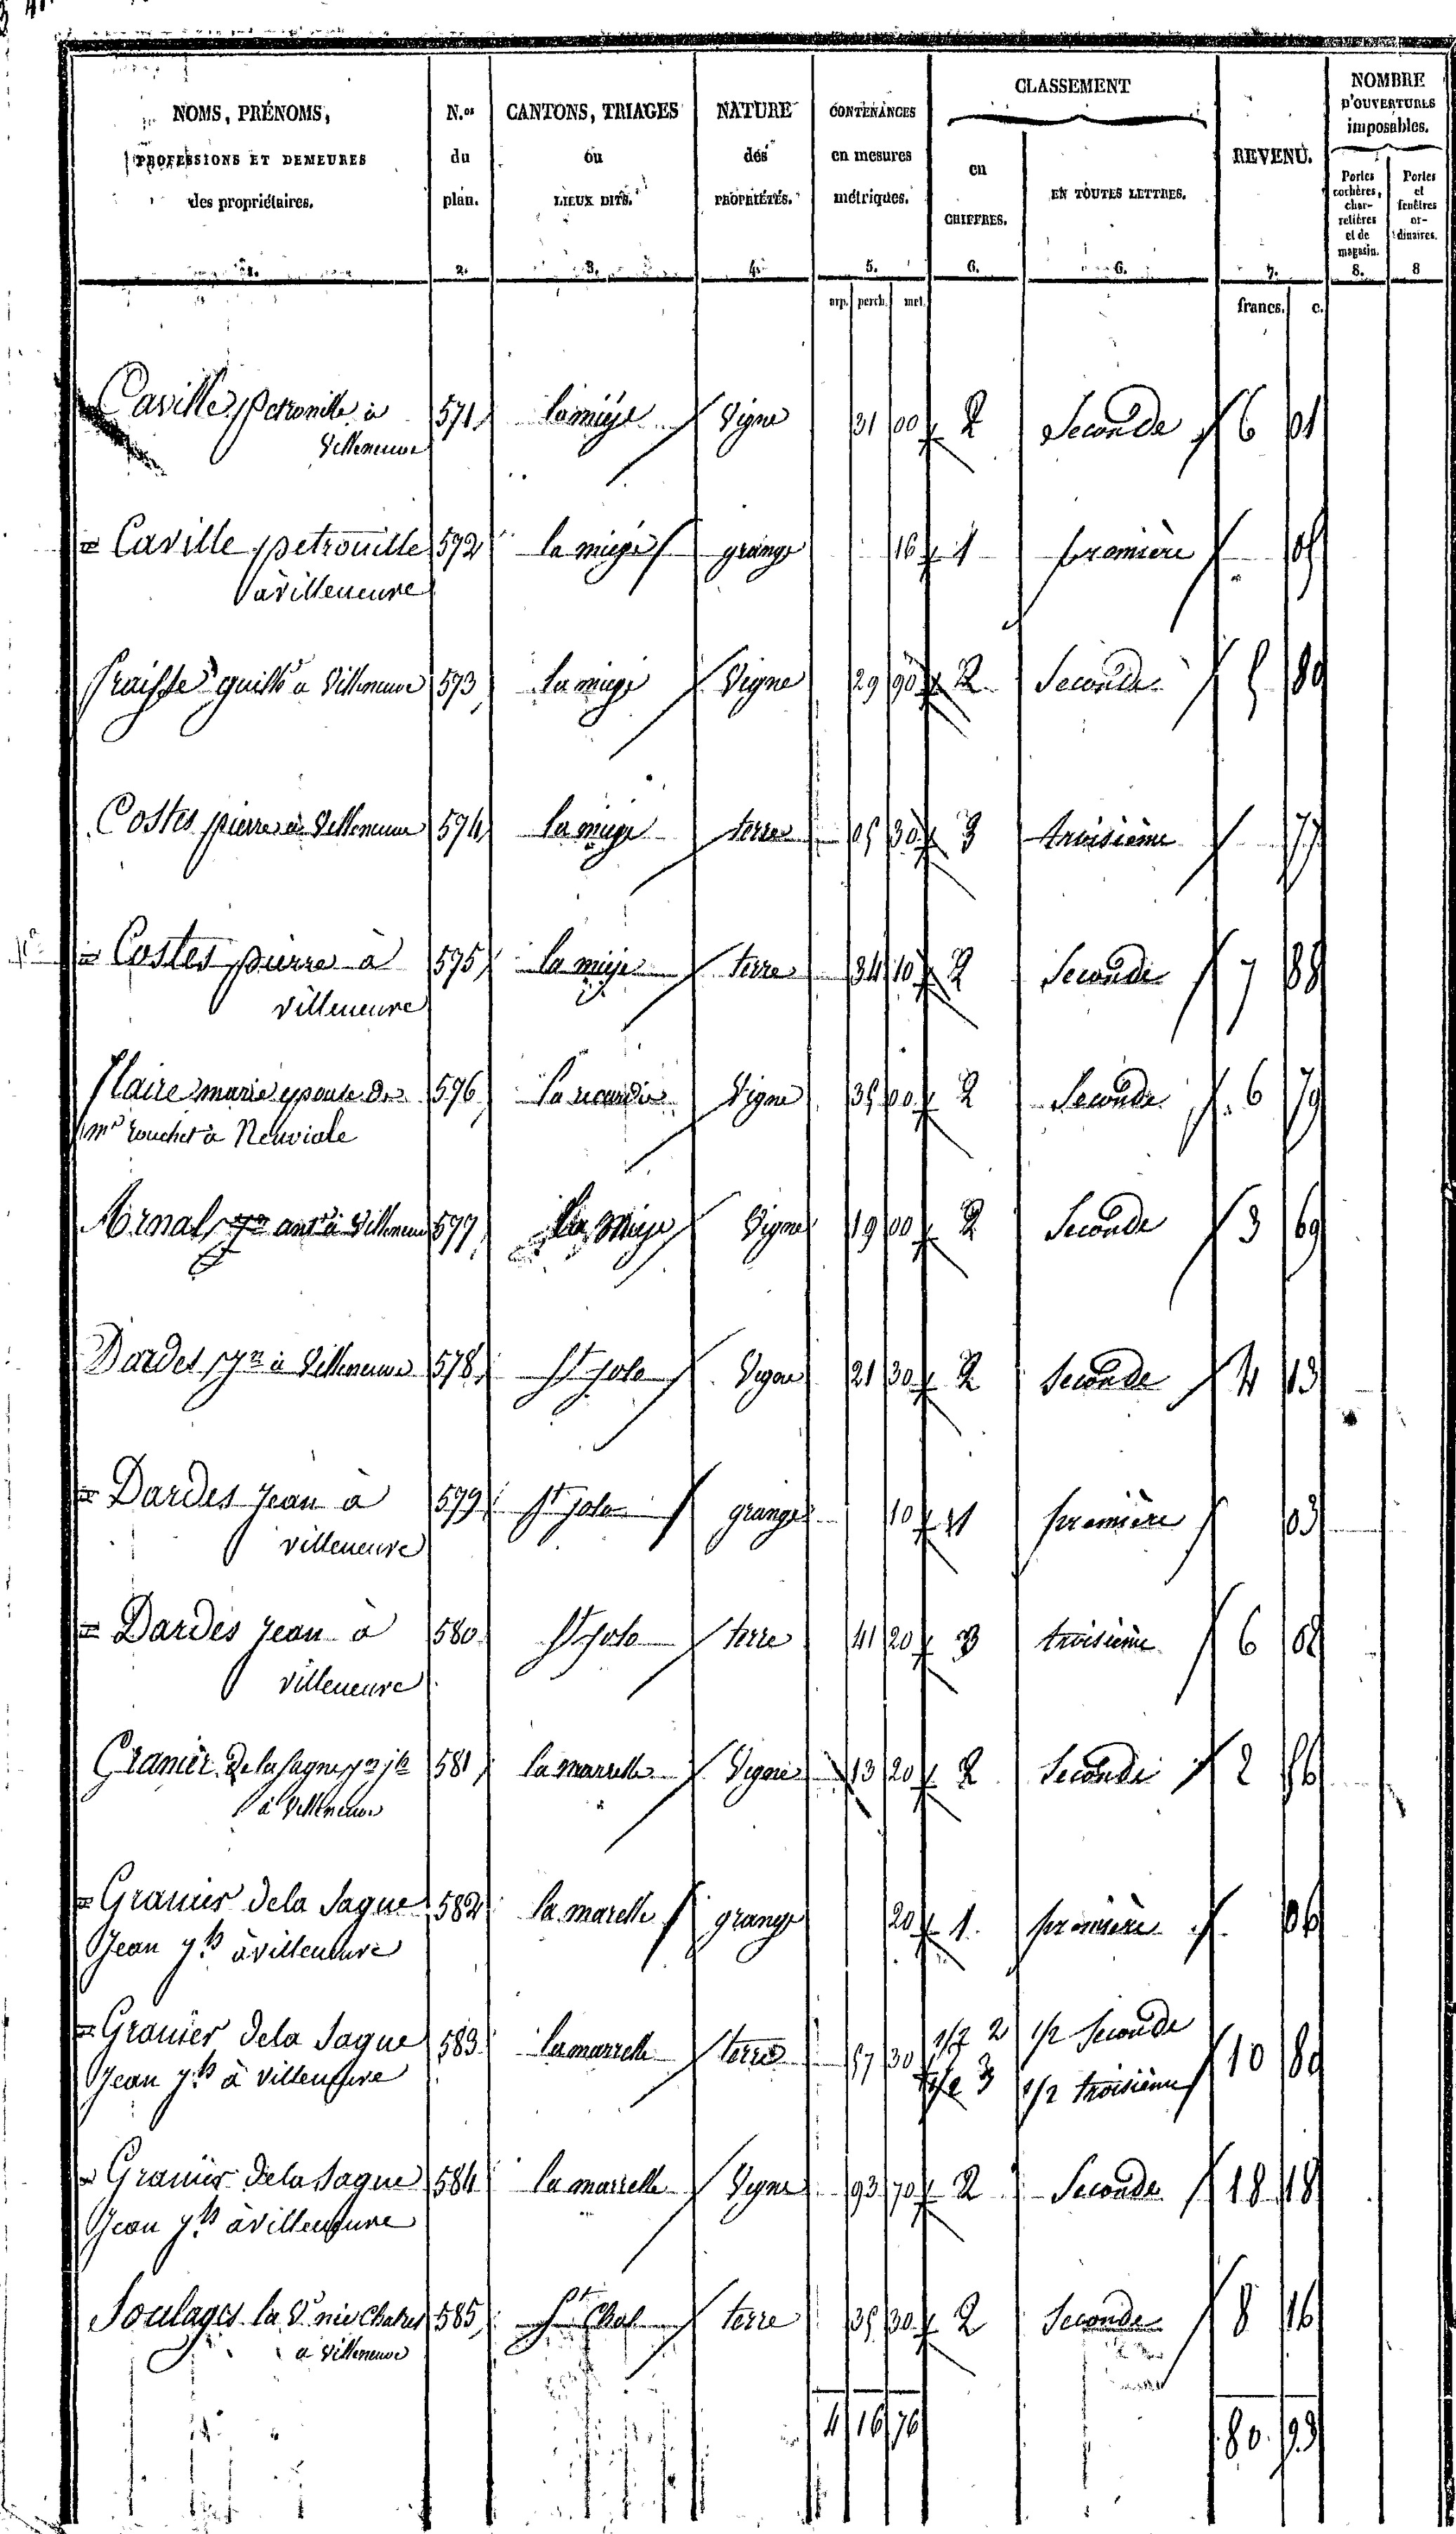 NOMS, PRÉNOMS, PROFESSIONS ET DEMEURES des propriétaires. 1.
N.os du plan. 2.
CANTONS, TRIAGES ou LIEUX DITS. 3.
NATURE des PROPRIÉTÉS. 4.
CONTENANCES en mesures métriques. 5.
CLASSEMENT
en CHIFFRES. 6.
EN TOUTES LETTRES. 6.
REVENU. 7.
NOMBRE D'OUVERTURES imposables.
Portes cochères, charretières et de magasin. 8.
Portes et fenêtres ordinaires. 8
arp. perch. met. francs. c.
Caville petronille à 571 la mieje Vigne 31 00 2 Seconde 6 01
Villeneuve
Caville petronille 572 la mieje grange 16 1 première 05
à villeneuve
fraisse guill à Villeneuve 573 la mieje Vigne 29 90 2 Seconde 5 80
Costes pierre à Villeneuve 574 la mieje terre 05 30 3 troisième 77
Costes pierre à 575 la mieje terre 34 10 2 Seconde 7 88
villeneuve
marie epouse de 596 Vigne 35 00 2 Seconde 6 79
à Neuviale
Arnal à Villeneuve 577 la mieje Vigne 19 00 2 Seconde 3 69
Dardes à Villeneuve 578 St jolo Vigne 21 30 2 Seconde 4 13
Dardes jean à 579 St jolo grange 10 1 première 03
villeneuve
Dardes jean à 580 St jolo terre 41 20 3 troisième 6 02
villeneuve
Granier de la sagne 581 la marrelle Vigne 13 20 2 Seconde 2 56
à Villeneuve
Granier de la sagne 582 la marelle grange 20 1 première 06
Jean à villeneuve
Granier de la sagne 583 la marrelle terre 57 30 1/2 2 1/2 Seconde 10 80
Jean à villeneuve 1/2 3 1/2 troisième
Granier de la sagne 584 la marrelle Vigne 93 70 2 Seconde 18 18
Jean à villeneuve
Soulages la Ve née Chatres 585 St Chol terre 35 30 2 Seconde 8 16
à Villeneuve
4 16 76 80 93